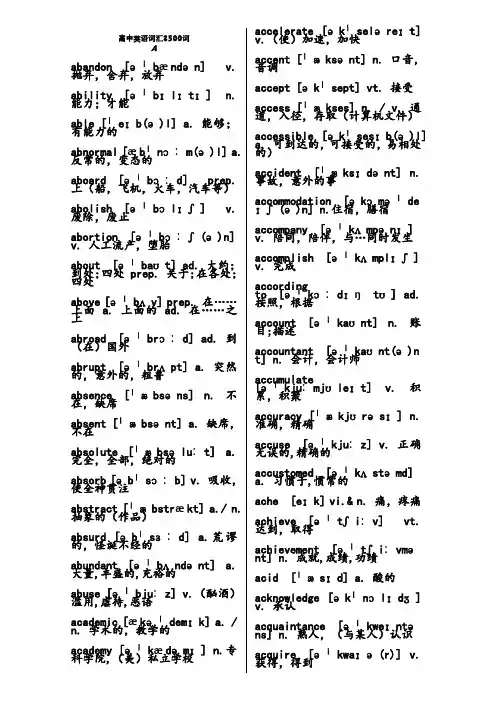 高中英语词汇3500词
A
abandon [ə ˈ bændə n] v.
抛弃，舍弃，放弃
ability [ə ˈ bɪ lɪ tɪ ] n.
能力；才能
able [ˈ eɪ b(ə )l] a. 能够；
有能力的
abnormal [æbˈ nɔː m(ə )l] a.
反常的，变态的
aboard [ə ˈ bɔː d] prep.
上（船，飞机，火车，汽车等）
abolish [ə ˈ bɔ lɪ ʃ ] v.
废除，废止
abortion [ə ˈ bɔː ʃ (ə )n]
v. 人工流产，堕胎
about [ə ˈ baʊ t] ad. 大约；
到处；四处 prep. 关于；在各处；
四处
above [ə ˈ bʌ v] prep. 在……
上面 a. 上面的 ad. 在……之
上
abroad [ə ˈ brɔː d] ad. 到
（在）国外
abrunt [ə ˈ brʌ pt] a. 突然
的，意外的，粗鲁
absence [ˈ æ bsə ns] n. 不
在，缺席
absent [ˈ æ bsə nt] a. 缺席，
不在
absolute [ˈ æ bsə luː t] a.
完全，全部，绝对的
absorb [ə bˈ sɔː b] v. 吸收，
使全神贯注
abstract [ˈ æ bstrækt] a./ n.
抽象的（作品）
absurd [ə bˈ sɜː d] a. 荒谬
的，怪诞不经的
abundant [ə ˈ bʌ ndə nt] a.
大量,丰盛的,充裕的
abuse [ə ˈ bjuː z] v.（酗酒）
滥用,虐待,恶语
academic [ækə ˈ demɪ k] a. /
n. 学术的，教学的
academy [ə ˈ kædə mɪ ] n. 专
科学院，（美）私立学校
accelerate [ə kˈ selə reɪ t]
v.（使）加速，加快
accent [ˈ æ ksə nt] n. 口音，
音调
accept [ə kˈ sept] vt. 接受
access [ˈ æ kses] n. / v. 通
道，入径，存取（计算机文件）
accessible [ə kˈ sesɪ b(ə )l]
a. 可到达的，可接受的，易相处
的）
accident [ˈ æ ksɪ də nt] n.
事故，意外的事
accommodation [ə kɔ mə ˈ de
ɪ ʃ (ə )n] n.住宿，膳宿
accompany [ə ˈ kʌ mpə nɪ ]
v. 陪同，陪伴，与…同时发生
accomplish [ə ˈ kʌ mplɪ ʃ ]
v. 完成
according
to [ə ˈ kɔː dɪ ŋ tʊ ] ad.
按照，根据
account [ə ˈ kaʊ nt] n. 账
目;描述
accountant [ə ˈ kaʊ nt(ə )n
t] n. 会计，会计师
accumulate
[ə ˈ kjuː mjʊ leɪ t] v. 积
累，积聚
accuracy [ˈ æ kjʊ rə sɪ ] n.
准确，精确
accuse [ə ˈ kjuː z] v. 正确
无误的,精确的
accustomed [ə ˈ kʌ stə md]
a. 习惯于,惯常的
ache [eɪ k] vi.& n. 痛，疼痛
achieve [ə ˈ tʃ iː v] vt.
达到，取得
achievement [ə ˈ tʃ iː vmə
nt] n. 成就,成绩,功绩
acid [ˈ æ sɪ d] a. 酸的
acknowledge [ə kˈ nɔ lɪ dʒ ]
v. 承认
acquaintance [ə ˈ kweɪ ntə
ns] n. 熟人，（与某人）认识
acquire [ə ˈ kwaɪ ə (r)] v.
获得，得到